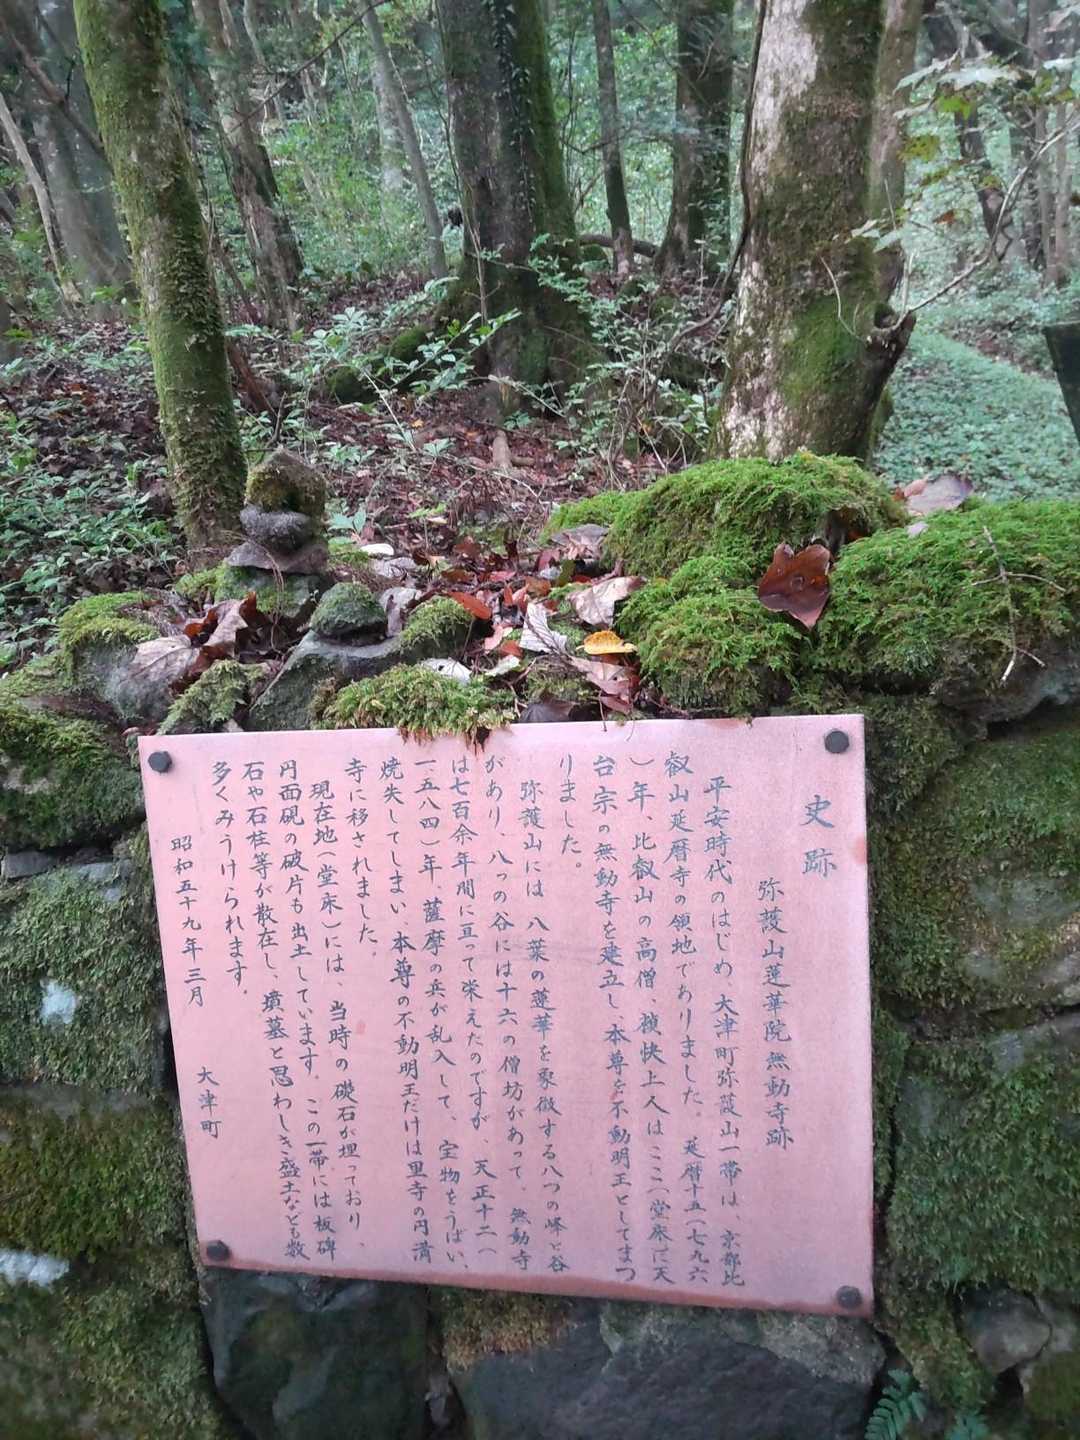 史跡
弥護山蓮華院無動寺跡
平安時代のはじめ、大津町弥護山一帯は、京都比
叡山延暦寺の領地でありました。延暦十五(七九六
)年、比叡山の高僧、槙快上人はここ(堂床)に天
台宗の無動寺を建立し、本尊を不動明王としてまつ
りました。
弥護山には八葉の蓮華を象徴する八つの峰と谷
があり、八っの谷には十六の僧坊があって、無動寺
は七百余年間に亘って栄えたのですが、天正十二(
一五八四)年、薩摩の兵が乱入して、宝物をうばい、
焼失してしまい、本尊の不動明王だけは里寺の円満
寺に移されました。
現在地(堂床)には、当時の礎石が埋っており、
円面硯の破片も出土しています。この一帯には板碑
石や石柱等が散在し、墳墓と思わしき盛土なども数
多くみうけられます。
昭和五十九年三月 大津町